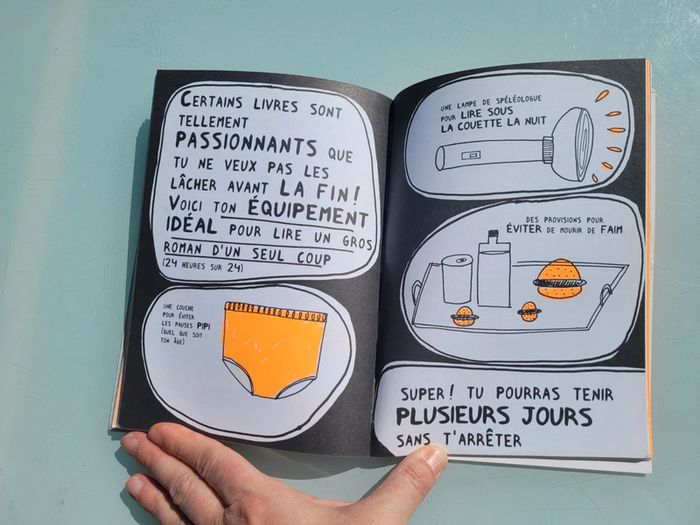 CERTAINS LIVRES SONT
TELLEMENT
PASSIONNANTS QUE
TU NE VEUX PAS LES
LÂCHER AVANT LA FIN!
VOICI TON ÉQUIPEMENT
IDÉAL POUR LIRE UN GROS
ROMAN D'UN SEUL COUP
(24 HEURES SUR 24)
UNE COUCHE
POUR ÉVITER
LES PAUSES PIPI
(QUEL QUE SOIT
TON ÂGE)
UNE LAMPE DE SPÉLÉOLOGUE
POUR LIRE SOUS
LA COUETTE LA NUIT
DES PROVISIONS POUR
ÉVITER DE MOURIR DE FAIM
SUPER! TU POURRAS TENIR
PLUSIEURS JOURS
SANS T'ARRÊTER